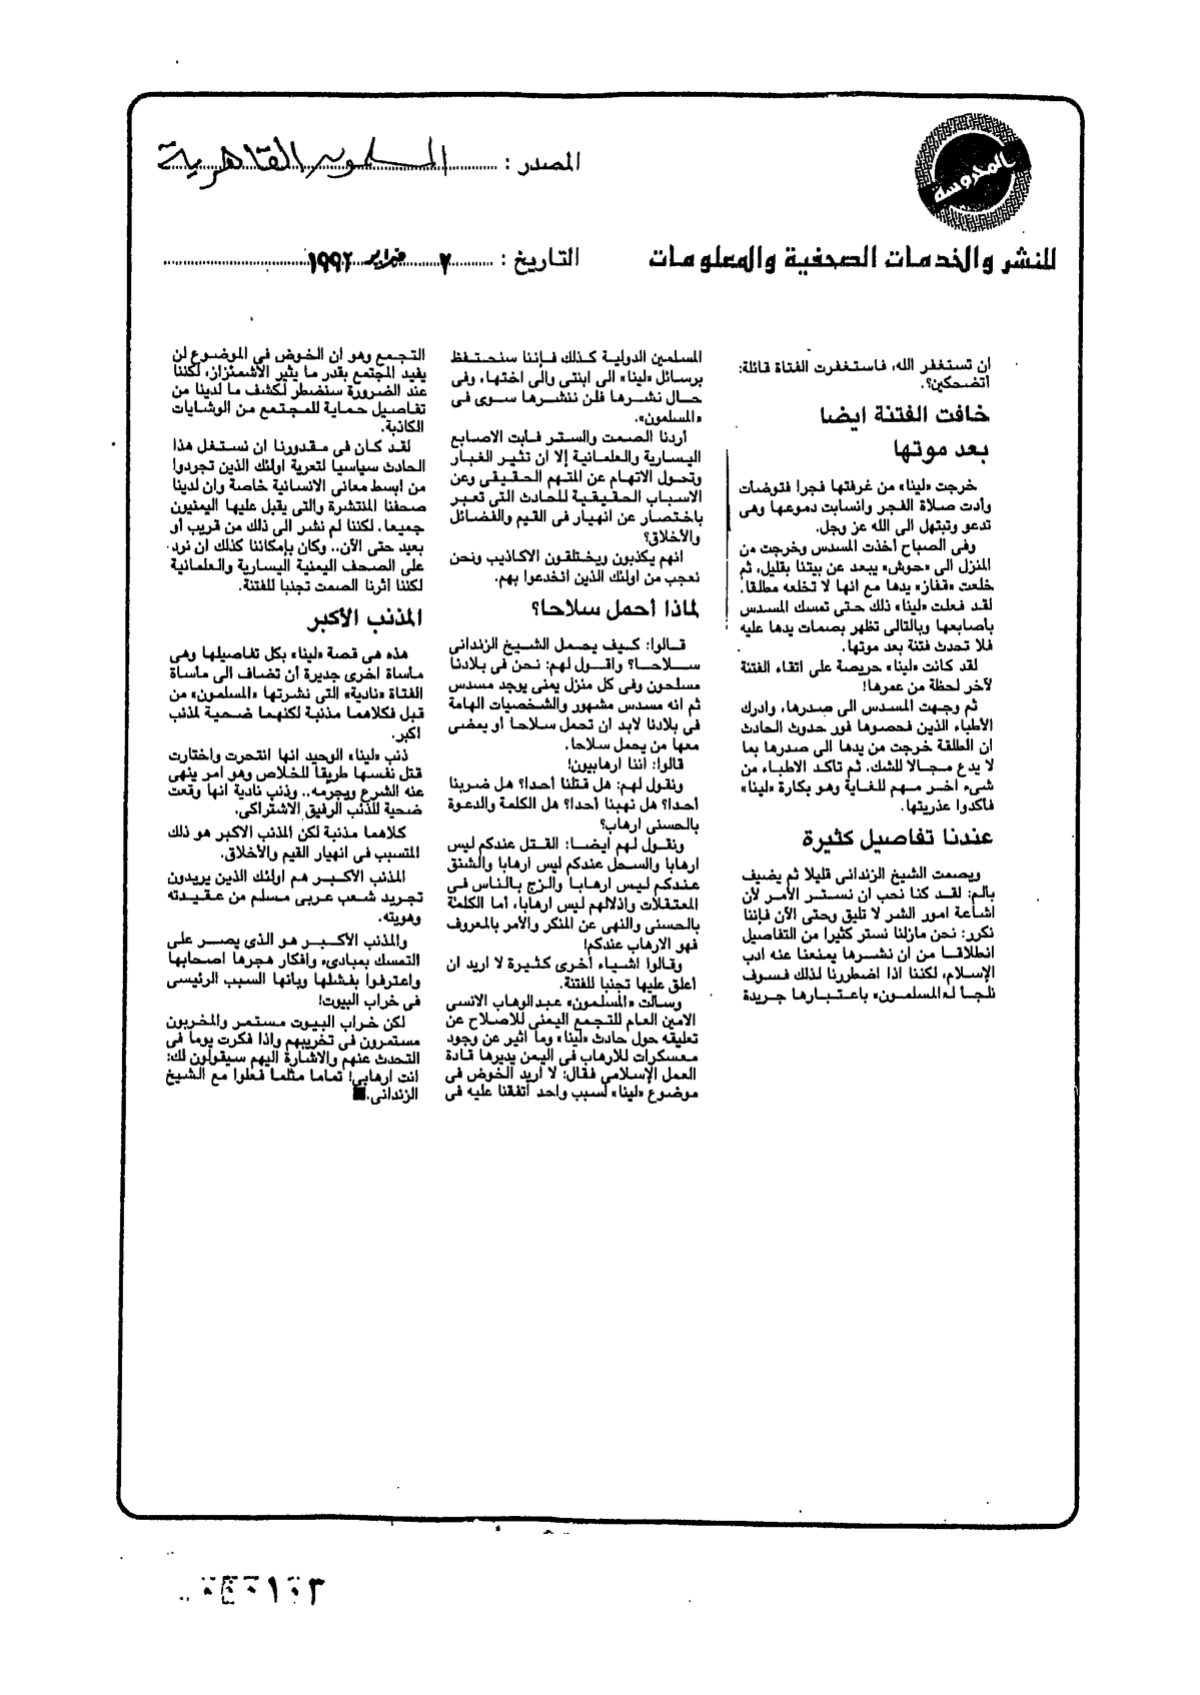 المحروسة
للنشر والخدمات الصحفية والمعلومات
المصدر : المسلمون القاهرية
التاريخ : ٧ فبراير ١٩٩٢
ان تستغفر الله، فاستغفرت الفتاة قائلة:
اتضحكين؟.
خافت الفتنة ايضا
بعد موتها
خرجت «لينا» من غرفتها فجرا فتوضات
وأدت صلاة الفجر وانسابت دموعها وهى
تدعو وتبتهل الى الله عز وجل.
وفى الصباح أخذت المسدس وخرجت من
المنزل الى «حوش» يبعد عن بيتنا بقليل، ثم
خلعت «قفاز» يدها مع انها لا تخلعه مطلقا.
لقد فعلت «لينا» ذلك حتى تمسك المسدس
بأصابعها وبالتالى تظهر بصمات يدها عليه
فلا تحدث فتنة بعد موتها.
لقد كانت «لينا» حريصة على اتقاء الفتنة
لآخر لحظة من عمرها!
ثم وجهت المسدس الى صدرها، وادرك
الأطباء الذين فحصوها فور حدوث الحادث
ان الطلقة خرجت من يدها الى صدرها بما
لا يدع مجالا للشك. ثم تاكد الاطباء من
شىء اخر مهم للغاية وهو بكارة «لينا»
فأكدوا عذريتها.
عندنا تفاصيل كثيرة
ويصمت الشيخ الزندانى قليلا ثم يضيف
بألم: لقد كنا نحب ان نستر الأمر لأن
اشاعة امور الشر لا تليق وحتى الآن فإننا
نكرر: نحن مازلنا نستر كثيرا من التفاصيل
انطلاقا من ان نشرها يمنعنا عنه ادب
الإسلام، لكننا اذا اضطررنا لذلك فسوف
نلجا لـ«المسلمون» باعتبارها جريدة
المسلمين الدولية كذلك فإننا سنحتفظ
برسائل «لينا» الى ابنتى والى اختها، وفى
حال نشرها فلن ننشرها سوى فى
«المسلمون».
أردنا الصمت والستر فأبت الاصابع
اليسارية والعلمانية إلا ان تثير الغبار
وتحول الاتهام عن المتهم الحقيقى وعن
الاسباب الحقيقية للحادث التى تعبر
باختصار عن انهيار فى القيم والفضائل
والأخلاق؟
انهم يكذبون ويختلقون الاكاذيب ونحن
نعجب من اولئك الذين انخدعوا بهم.
لماذا أحمل سلاحا؟
قالوا: كيف يحمل الشيخ الزندانى
سلاحا؟ واقول لهم: نحن فى بلادنا
مسلحون وفى كل منزل يمنى يوجد مسدس
ثم انه مسدس مشهور والشخصيات الهامة
فى بلادنا لابد ان تحمل سلاحا أو يمضى
معها من يحمل سلاحا.
قالوا: اننا ارهابيون!
ونقول لهم: هل قتلنا أحدا؟ هل ضربنا
أحدا؟ هل نهبنا أحدا؟ هل الكلمة والدعوة
بالحسنى ارهاب؟
ونقول لهم ايضا: القتل عندكم ليس
ارهابا والسحل عندكم ليس ارهابا والشنق
عندكم ليس ارهابا والزج بالناس فى
المعتقلات واذلالهم ليس ارهابا، أما الكلمة
بالحسنى والنهى عن المنكر والأمر بالمعروف
فهو الارهاب عندكم!
وقالوا اشياء أخرى كثيرة لا اريد ان
أعلق عليها تجنبا للفتنة.
وسالت «المسلمون» عبدالوهاب الانسى
الامين العام للتجمع اليمنى للاصلاح عن
تعليقه حول حادث «لينا» وما اثير عن وجود
معسكرات للارهاب فى اليمن يديرها قادة
العمل الإسلامى فقال: لا اريد الخوض فى
موضوع «لينا» لسبب واحد اتفقنا عليه فى
التجمع وهو ان الخوض فى الموضوع لن
يفيد المجتمع بقدر ما يثير الاشمئزاز، لكننا
عند الضرورة سنضطر لكشف ما لدينا من
تفاصيل حماية للمجتمع من الوشايات
الكاذبة.
لقد كان فى مقدورنا ان نستغل هذا
الحادث سياسيا لتعرية اولئك الذين تجردوا
من ابسط معانى الانسانية خاصة وان لدينا
صحفنا المنتشرة والتى يقبل عليها اليمنيون
جميعا، لكننا لم نشر الى ذلك من قريب أو
بعيد حتى الآن.. وكان بإمكاننا كذلك ان نرد
على الصحف اليمنية اليسارية والعلمانية
لكننا اثرنا الصمت تجنبا للفتنة.
المذنب الأكبر
هذه هى قصة «لينا» بكل تفاصيلها وهى
مأساة اخرى جديرة أن تضاف الى مأساة
الفتاة «نادية» التى نشرتها «المسلمون» من
قبل فكلاهما مذنبة لكنهما ضحية لمذنب
اكبر.
ذنب «لينا» الوحيد انها انتحرت واختارت
قتل نفسها طريقا للخلاص وهو امر ينهى
عنه الشرع ويجرمه.. وذنب نادية انها وقعت
ضحية للذئب الرفيق الاشتراكى.
كلاهما مذنبة لكن المذنب الاكبر هو ذلك
المتسبب فى انهيار القيم والأخلاق.
المذنب الأكبر هم اولئك الذين يريدون
تجريد شعب عربى مسلم من عقيدته
وهويته.
والمذنب الأكبر هو الذى يصر على
التمسك بمبادىء وافكار هجرها اصحابها
واعترفوا بفشلها وبانها السبب الرئيسى
فى خراب البيوت!
لكن خراب البيوت مستمر والمخربون
مستمرون فى تخريبهم واذا فكرت يوما فى
التحدث عنهم والاشارة اليهم سيقولون لك:
انت ارهابى! تماما مثلما فعلوا مع الشيخ
الزندانى.■